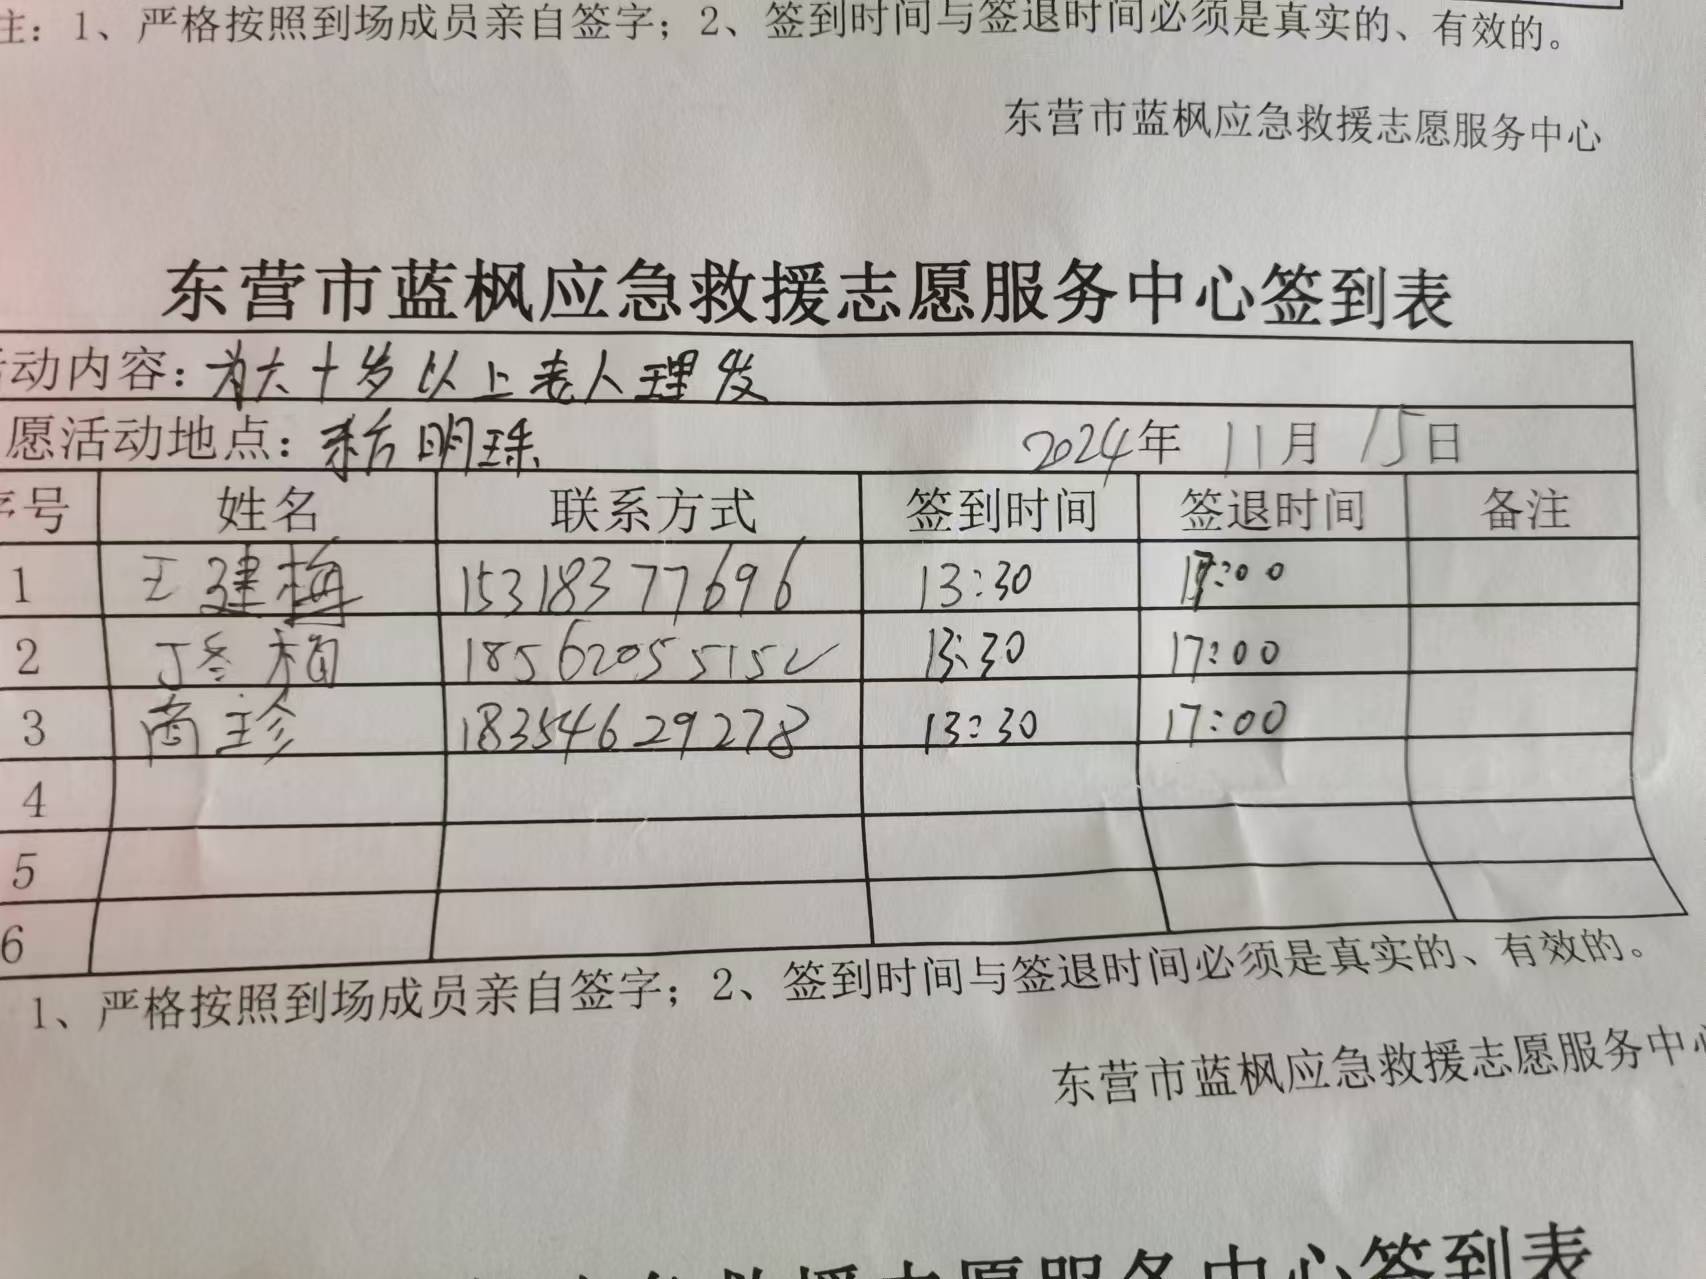 注：1、严格按照到场成员亲自签字；2、签到时间与签退时间必须是真实的、有效的。
东营市蓝枫应急救援志愿服务中心
东营市蓝枫应急救援志愿服务中心签到表
活动内容：为六十岁以上老人理发
愿活动地点： 明珠 2024年 11月 15日
序号 姓名 联系方式 签到时间 签退时间 备注
1 王建梅 15318377696 13:30 17:00
2 丁冬梅 18562055152 13:30 17:00
3 商珍 18354629278 13:30 17:00
4
5
6
1、严格按照到场成员亲自签字；2、签到时间与签退时间必须是真实的、有效的。
东营市蓝枫应急救援志愿服务中心
援志愿服务中心签到表